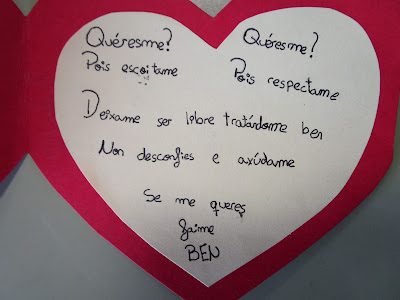 Quéresme?
Pois escoitame
Quéresme?
Pois respectame
Deixame ser libre tratándome ben
Non desconfies e axúdame
Se me queres
faime
BEN